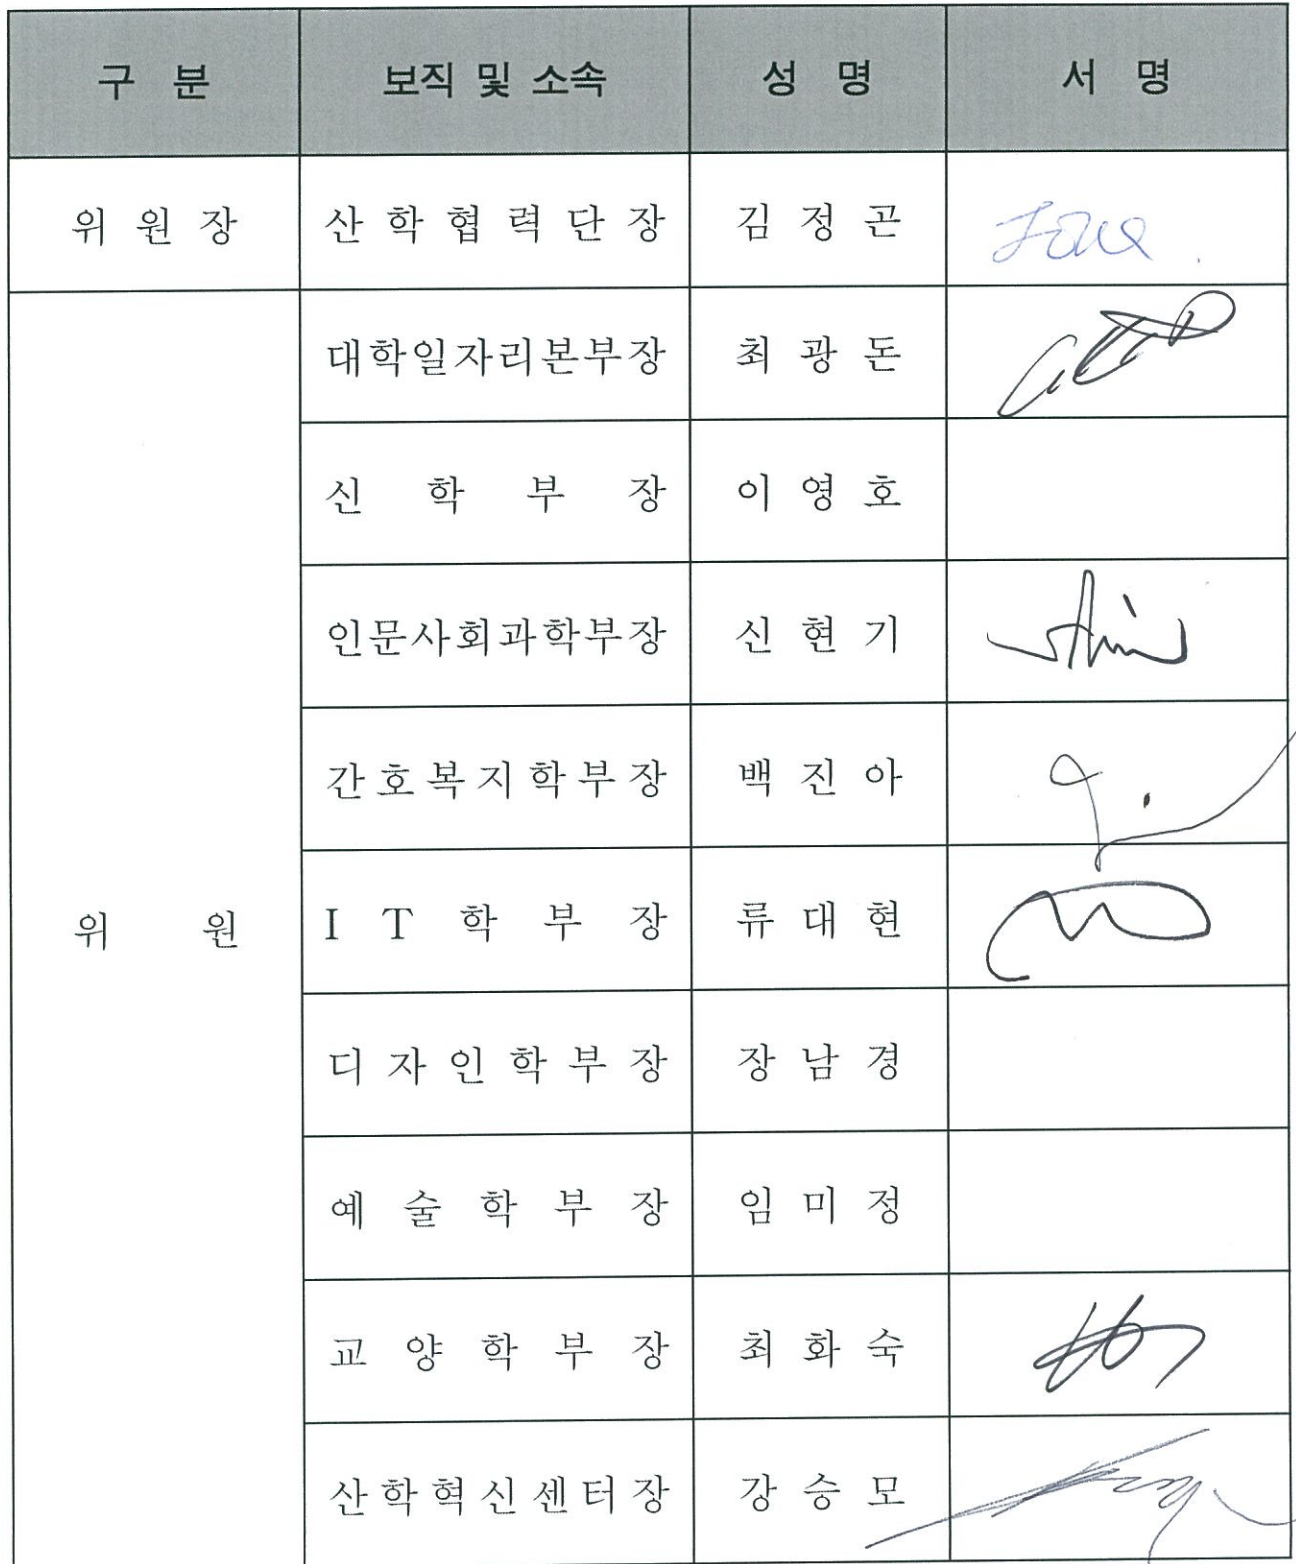 구 분 보직 및 소속 성 명 서 명
위 원 장 산 학 협 력 단 장 김 정 곤
대학일자리본부장 최 광 돈
신 학 부 장 이 영 호
인문사회과학부장 신 현 기
간호복지학부장 백 진 아
위 원 I T 학 부 장 류 대 현
디 자 인 학 부 장 장 남 경
예 술 학 부 장 임 미 정
교 양 학 부 장 최 화 숙
산학혁신센터장 강 승 모